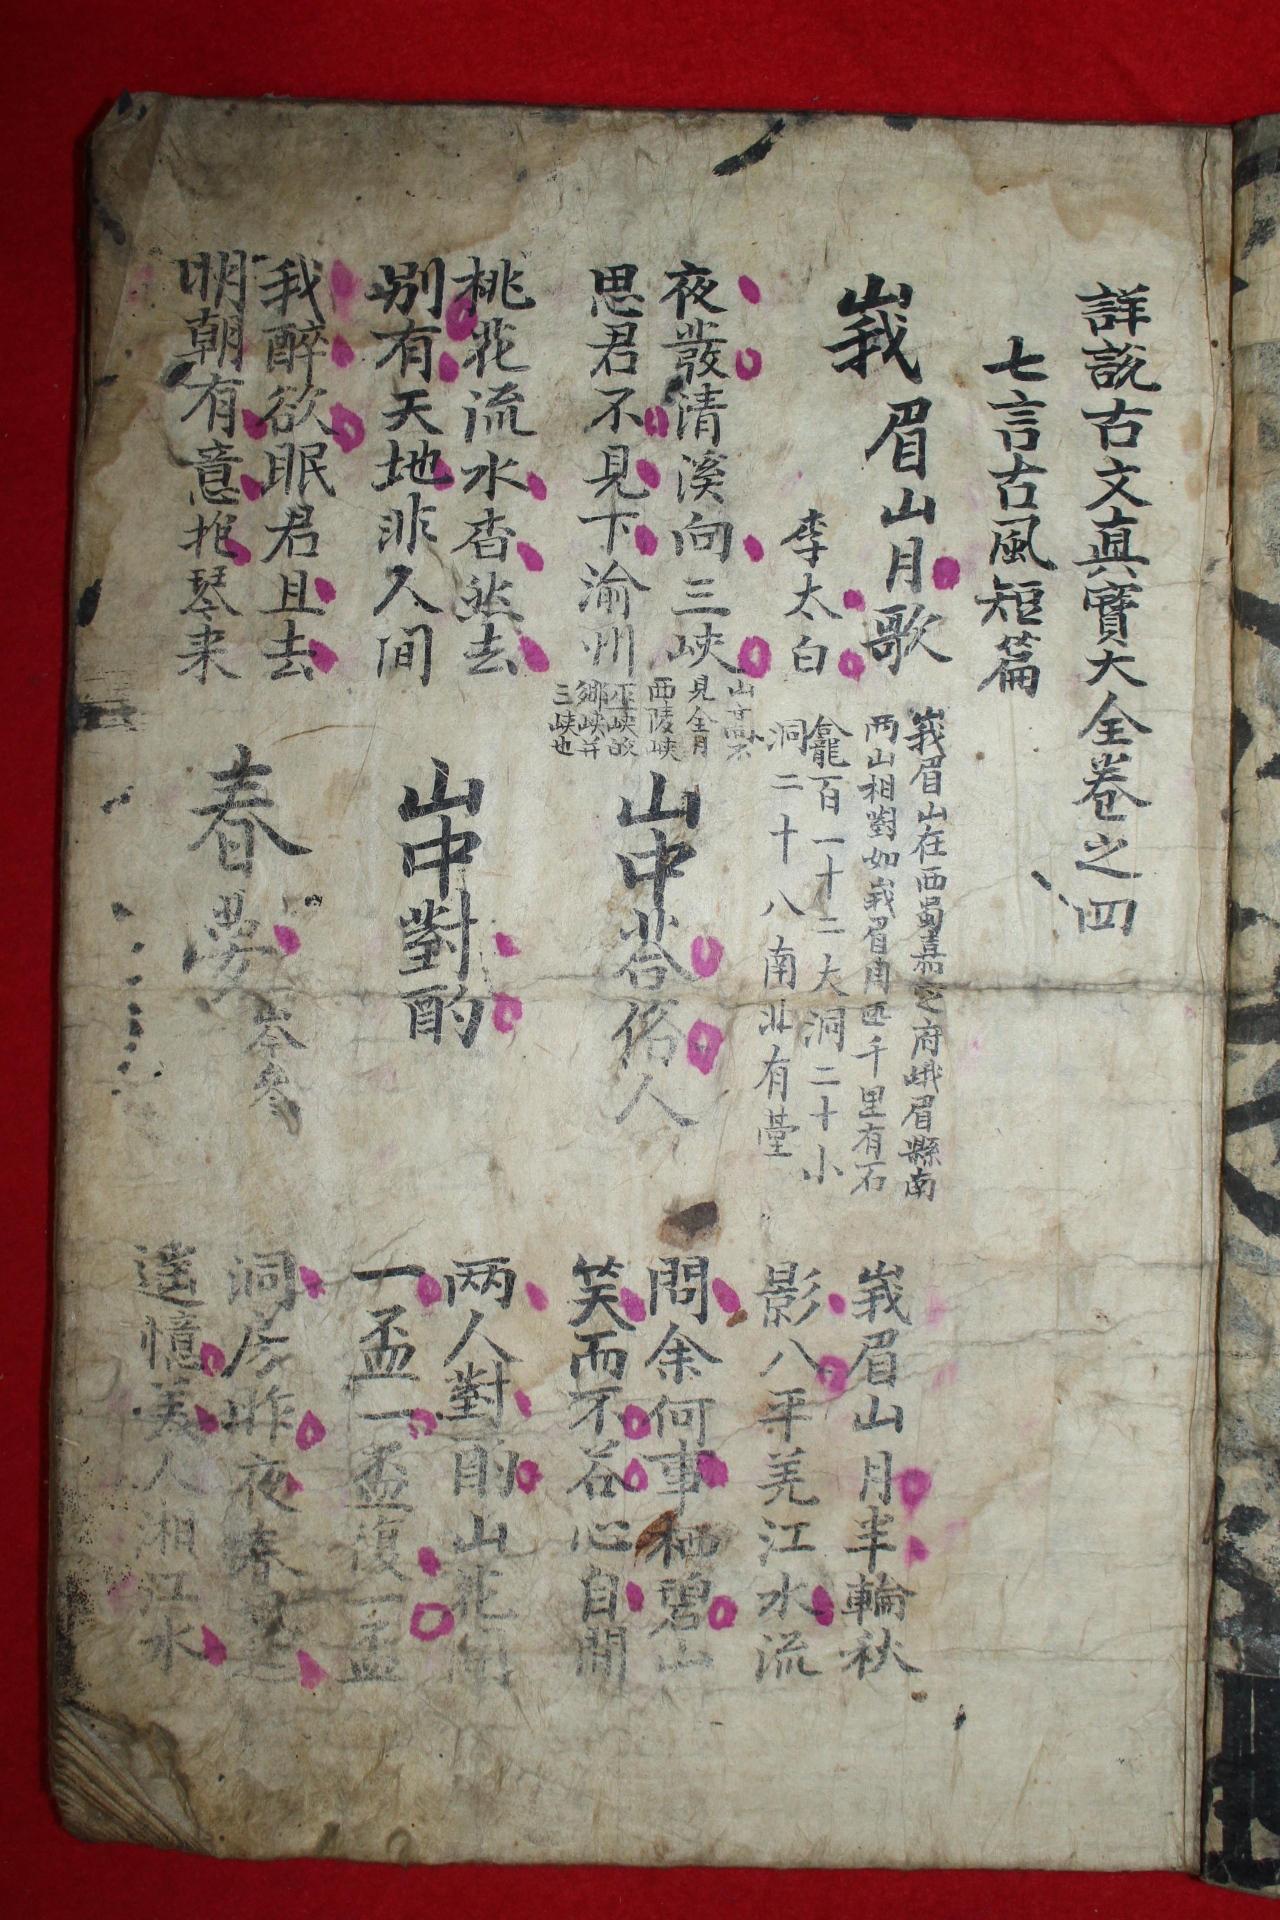 詳說古文眞寶大全卷之四
七言古風短篇
峩眉山月歌
李太白
峩眉山在西蜀嘉定府峨眉縣南
两山相對如峩眉周匝千里有石
龕百一十二大洞二十小
洞二十八南北有臺
峩眉山月半輪秋
影入平羌江水流
夜發清溪向三峽
思君不見下渝州
山高不
見全月
西陵峽
巫峽皈
鄉峽并
三峽也
山中答俗人
問余何事栖碧山
笑而不答心自閒
桃花流水杳然去
别有天地非人间
山中對酌
两人對酌山花開
一盃一盃復一盃
我醉欲眠君且去
明朝有意抱琴来
春夢
岑參
洞房昨夜春風起
遙憶美人湘江水